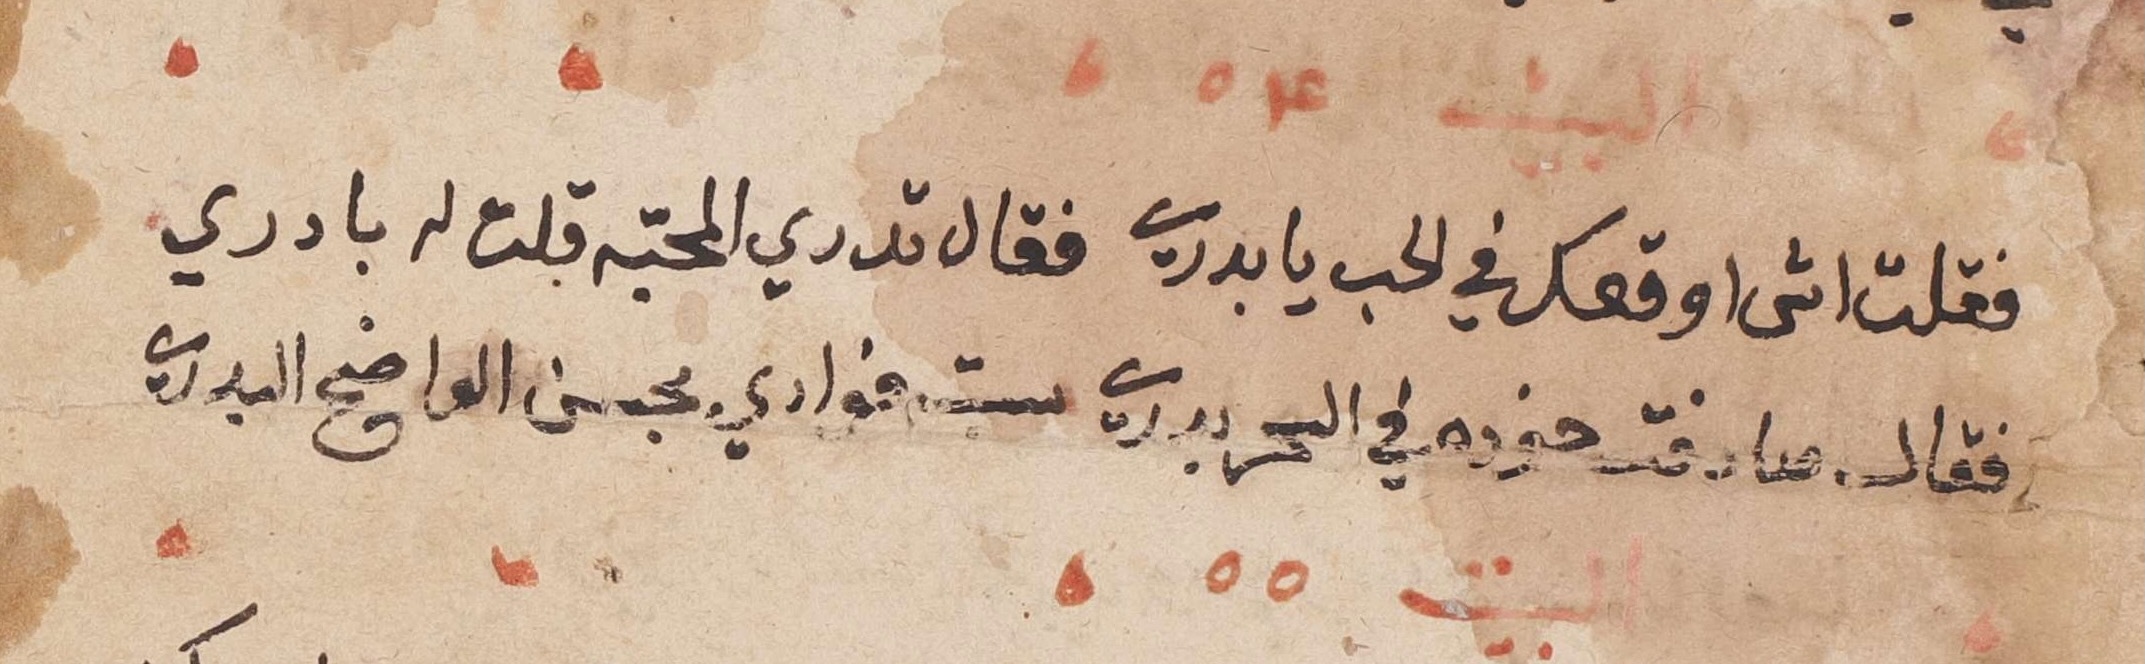 البيت ٥٤
فقلت اش اوقعك في الحب يا بدري فقال تدري المحبّه قلت له بادري
فقال صادفت خوده في السحر بدري سبته فوادي بحسن الواضح البدري
البيت ٥٥